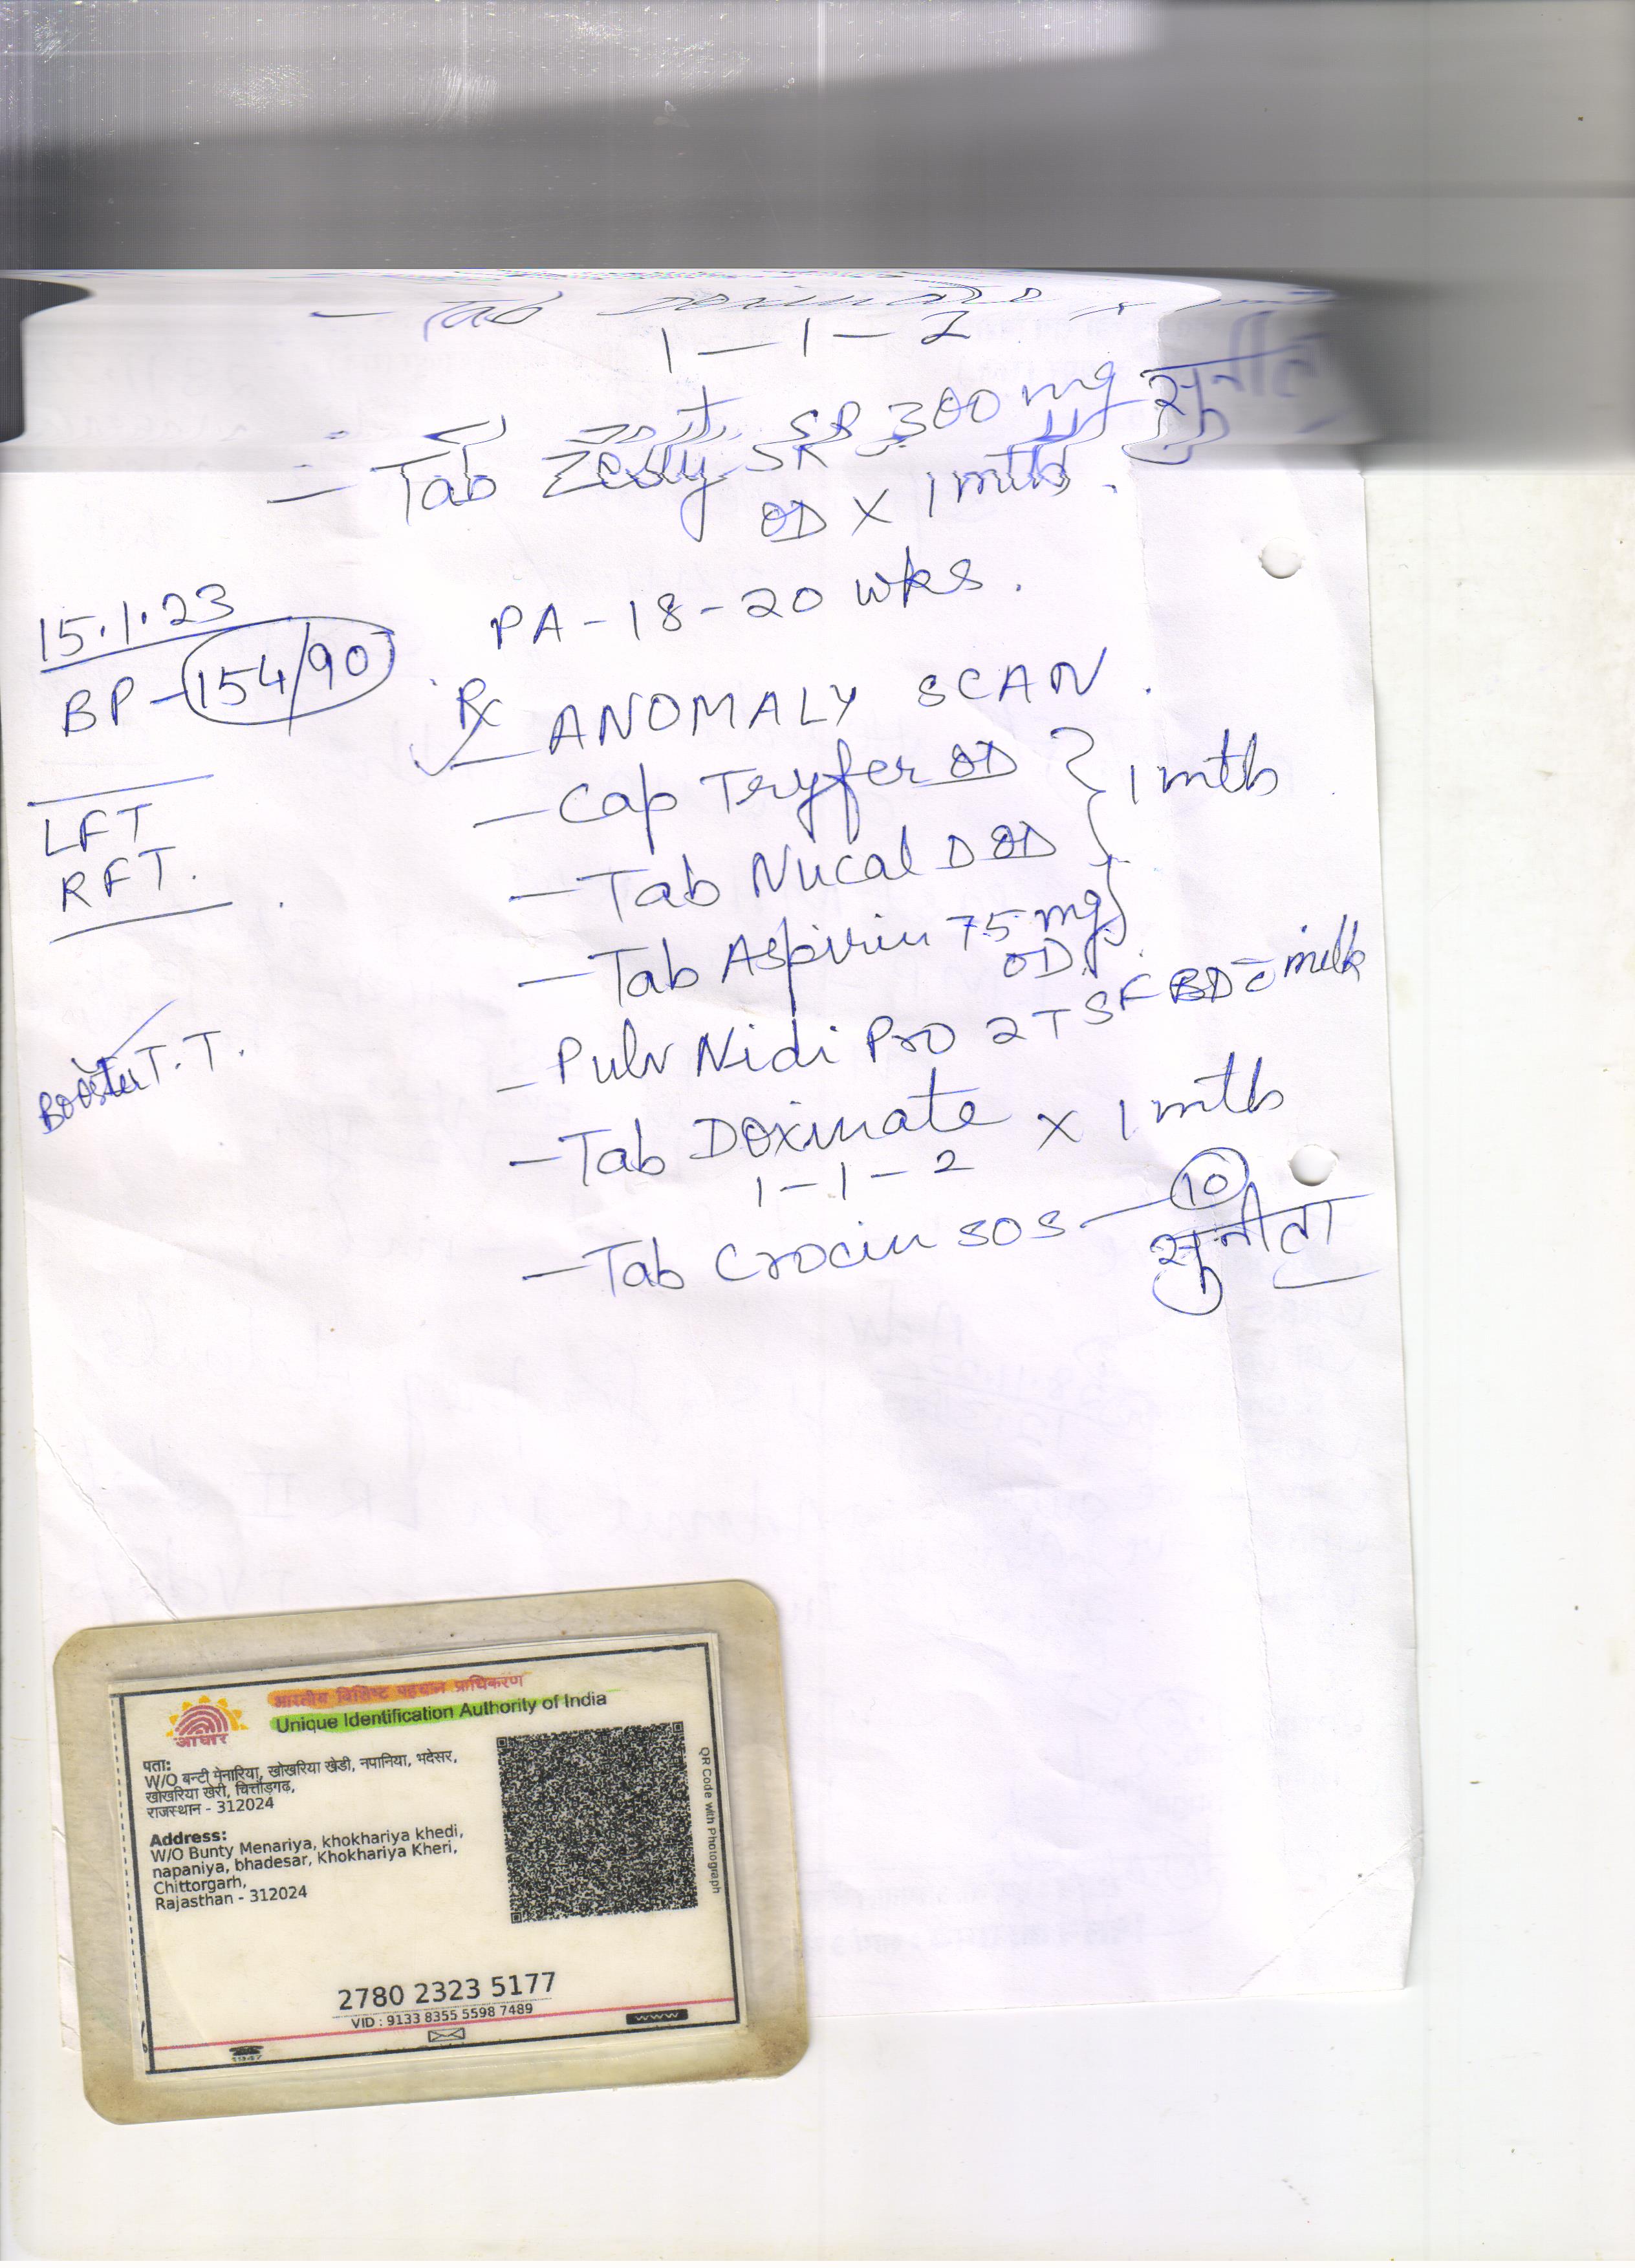 - Tab Doxinate x 1
1-1-2
- Tab Zesty SR 300 mg
OD x 1 mth.
15.1.23
BP-154/90
PA-18-20 wks.
Rx
- ANOMALY SCAN.
LFT
RFT.
- Cap Tryfer OD } 1 mth
- Tab Nucal D OD
- Tab Aspirin 75 mg
OD
- Pulv Nidi Pro 2 TSF BD c milk
Booster T.T.
- Tab Doxinate x 1 mth
1-1-2
- Tab Crocin SOS - 10
सुनीता
आधार
भारतीय विशिष्ट पहचान प्राधिकरण
Unique Identification Authority of India
पता:
W/O बन्टी मेनारिया, खोखरिया खेडी, नपानिया, भदेसर,
खोखरिया खेरी, चित्तौड़गढ,
राजस्थान - 312024
Address:
W/O Bunty Menariya, khokhariya khedi,
napaniya, bhadesar, Khokhariya Kheri,
Chittorgarh,
Rajasthan - 312024
QR Code with Photograph
2780 2323 5177
VID : 9133 8355 5598 7489
1947
www